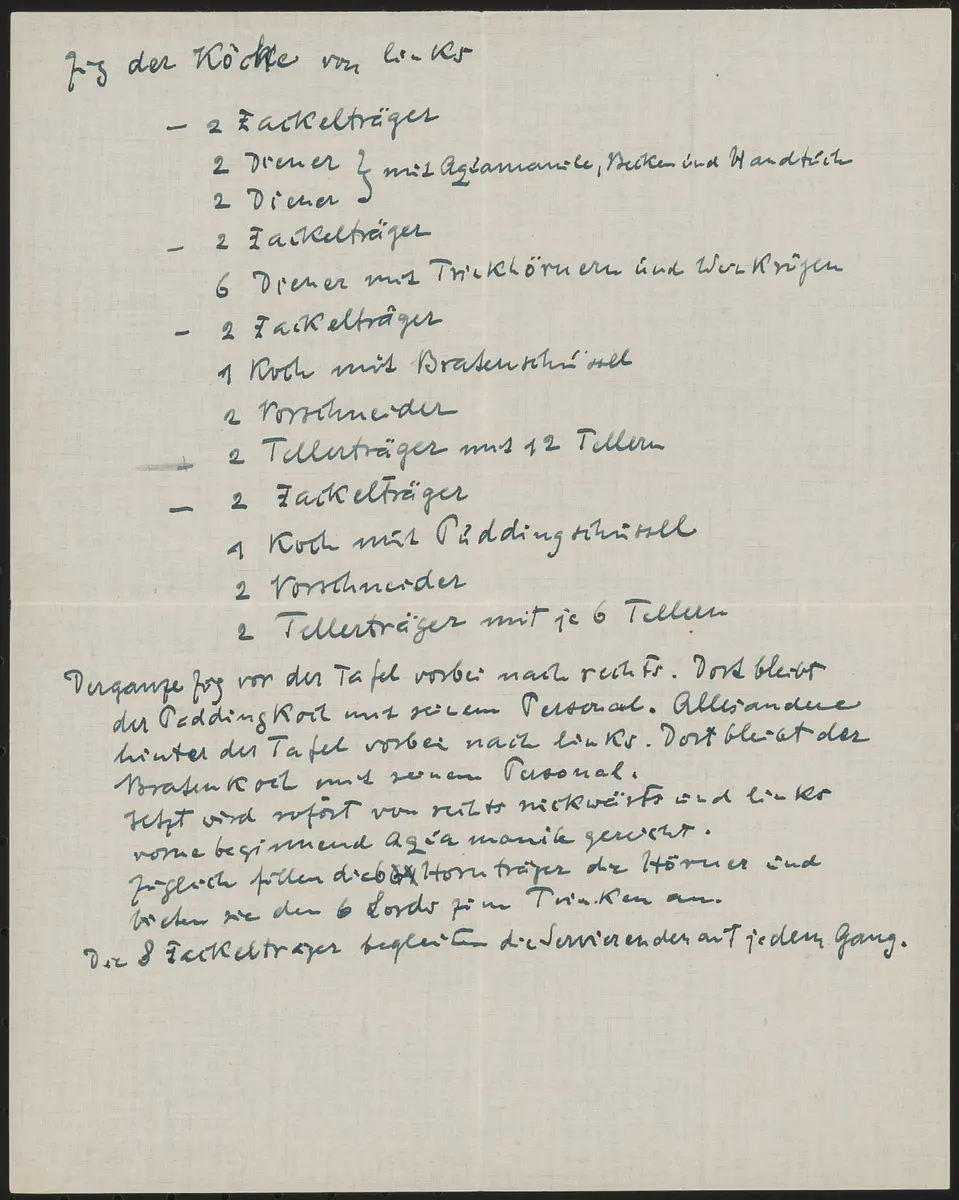 Zug der Köche von links
– 2 Fackelträger
2 Diener } mit Aquamanile, Becken und Handtuch
2 Diener
– 2 Fackelträger
6 Diener mit Trinkhörnern und Weinkrügen
– 2 Fackelträger
1 Koch mit Bratenschüssel
2 Vorschneider
2 Tellerträger mit 12 Tellern
– 2 Fackelträger
1 Koch mit Puddingschüssel
2 Vorschneider
2 Tellerträger mit je 6 Tellern
Der ganze Zug vor der Tafel vorbei nach rechts. Dort bleibt
der Puddingkoch mit seinem Personal. Alles andere
hinter der Tafel vorbei nach links. Dort bleibt der
Bratenkoch mit seinem Personal.
Jetzt wird sofort von rechts rückwärts und links
vorne beginnend Aquamanile gereicht.
Zugleich füllen die 6 Hornträger die Hörner und
bieten sie den 6 Lords zum Trinken an.
Die 8 Fackelträger begleiten die Servierenden auf jedem Gang.